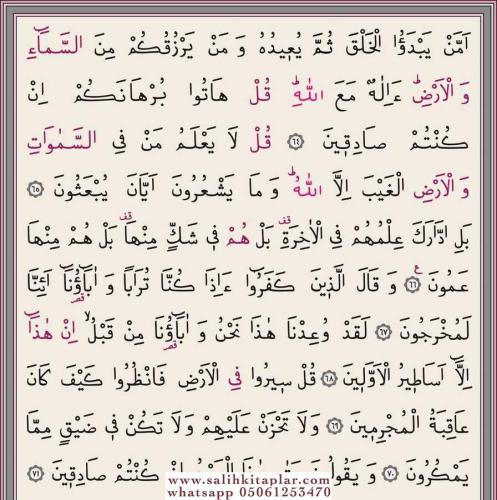 اَمَّنْ يَبْدَؤُا الْخَلْقَ ثُمَّ يُعٖيدُهُ وَ مَنْ يَرْزُقُكُمْ مِنَ السَّمَٓاءِ
وَ الْاَرْضِؕ ءَاِلٰهٌ مَعَ اللّٰهِؕ قُلْ هَاتُوا بُرْهَانَكُمْ اِنْ
كُنْتُمْ صَادِقٖينَ ﴿٦٤﴾ قُلْ لَا يَعْلَمُ مَنْ فِى السَّمٰوَاتِ
وَ الْاَرْضِ الْغَيْبَ اِلَّا اللّٰهُؕ وَ مَا يَشْعُرُونَ اَيَّانَ يُبْعَثُونَ ﴿٦٥﴾
بَلِ ادَّارَكَ عِلْمُهُمْ فِى الْاٰخِرَةِ بَلْ هُمْ فٖى شَكٍّ مِنْهَا بَلْ هُمْ مِنْهَا
عَمُونَ ﴿٦٦﴾ وَ قَالَ الَّذٖينَ كَفَرُٓوا ءَاِذَا كُنَّا تُرَابًا وَ اٰبَٓاؤُنَٓا اَئِنَّا
لَمُخْرَجُونَ ﴿٦٧﴾ لَقَدْ وُعِدْنَا هٰذَا نَحْنُ وَ اٰبَٓاؤُنَا مِنْ قَبْلُۙ اِنْ هٰذَٓا
اِلَّٓا اَسَاطٖيرُ الْاَوَّلٖينَ ﴿٦٨﴾ قُلْ سٖيرُوا فِى الْاَرْضِ فَانْظُرُوا كَيْفَ كَانَ
عَاقِبَةُ الْمُجْرِمٖينَ ﴿٦٩﴾ وَلَا تَحْزَنْ عَلَيْهِمْ وَلَا تَكُنْ فٖى ضَيْقٍ مِمَّا
يَمْكُرُونَ ﴿٧٠﴾ وَ يَقُولُونَ كُنْتُمْ صَادِقٖينَ ﴿٧١﴾
www.salihkitaplar.com
whatsapp 05061253470